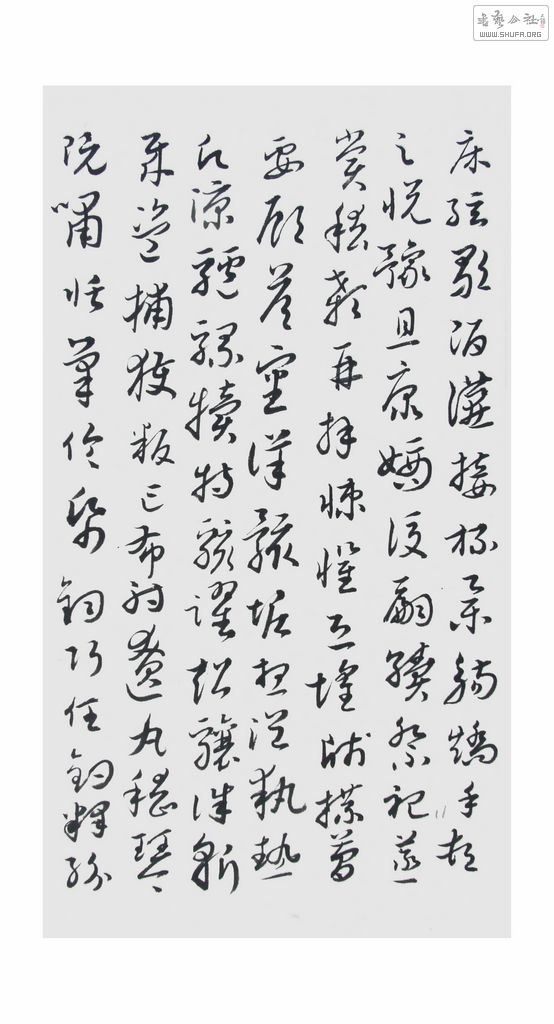 床絃歌酒讌接杯舉觴矯手頓
足悅豫且康嫡後嗣續祭祀蒸
嘗稽顙再拜悚懼恐惶牋牒簡
要顧答審詳骸垢想浴執熱
願涼驢騾犢特駭躍超驤誅斬
賊盜捕獲叛亡布射遼丸嵇琴
阮嘯恬筆倫紙鈞巧任釣釋紛
書藝公社
WWW.SHUFA.ORG